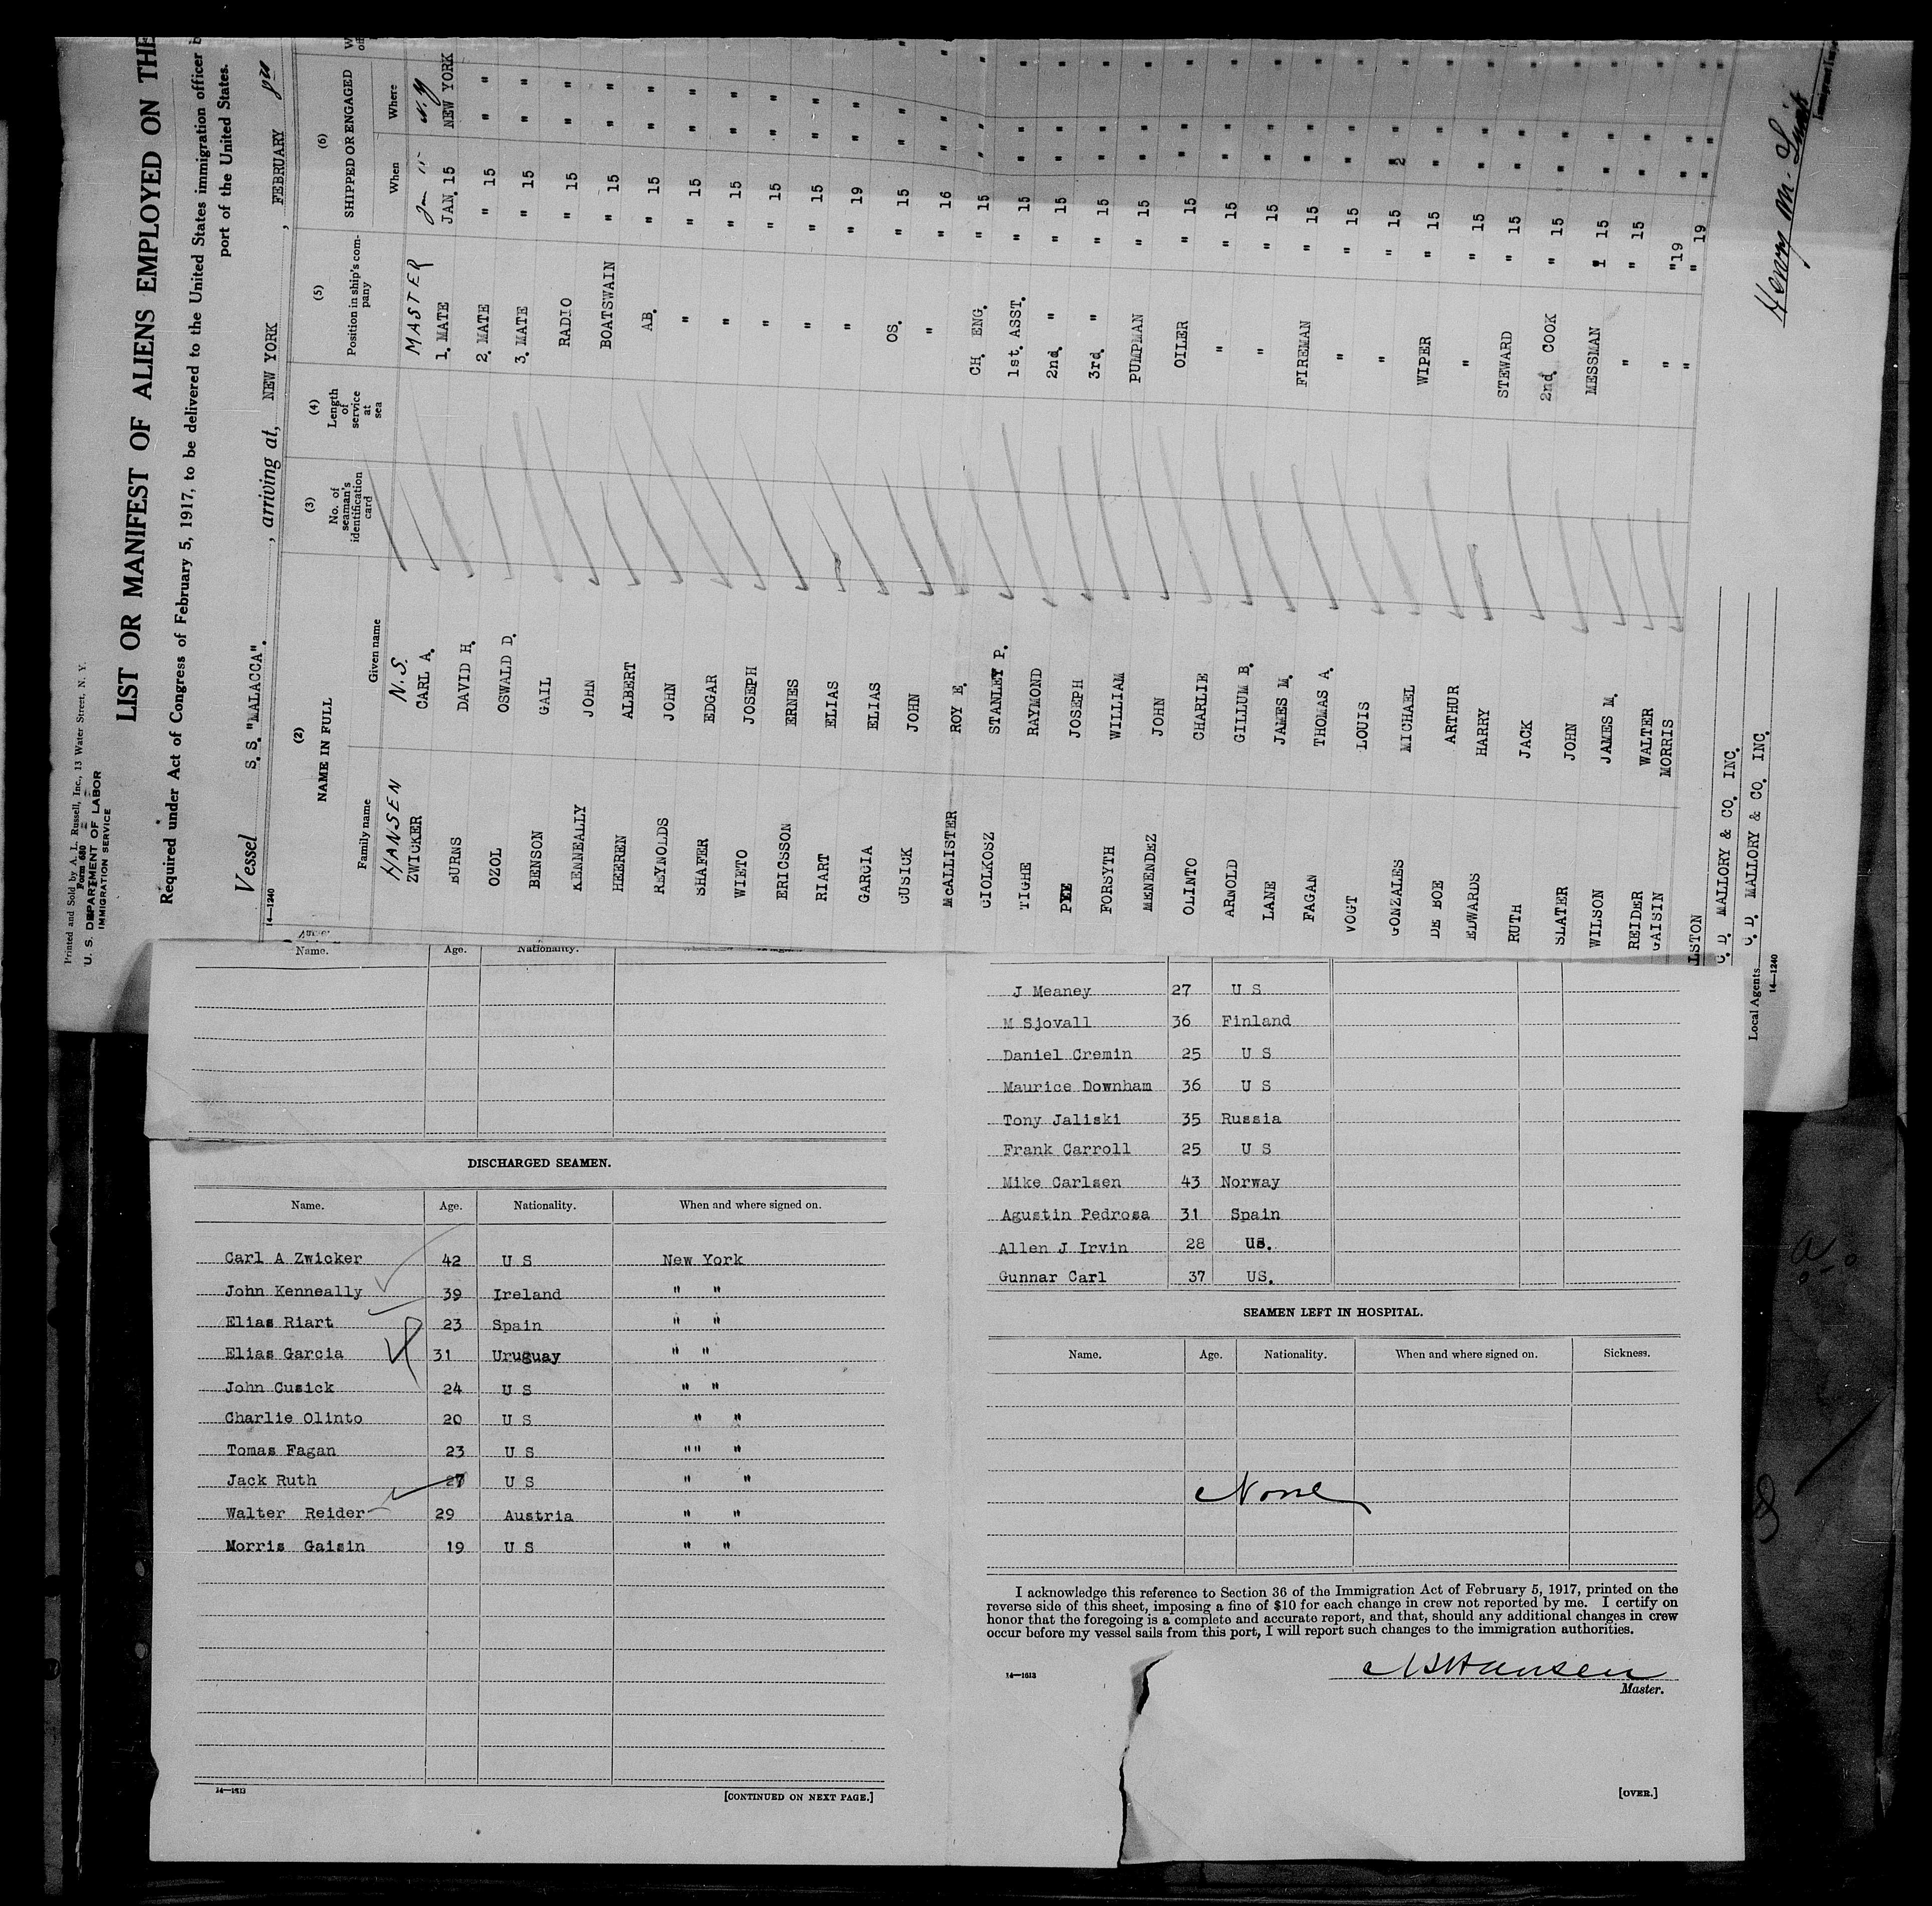 Printed and Sold by A. L. Russell, Inc., 13 Water Street, N. Y.
Form 680
U. S. DEPARTMENT OF LABOR
IMMIGRATION SERVICE
LIST OR MANIFEST OF ALIENS EMPLOYED ON THE
Required under Act of Congress of February 5, 1917, to be delivered to the United States immigration officer
port of the United States.
Vessel S. S. "MALACCA". , arriving at, NEW YORK , FEBRUARY
14—1240
(2) (3) (4) (5) (6)
NAME IN FULL No. of seaman's identification card Length of service at sea Position in ship's company SHIPPED OR ENGAGED
Family name Given name When Where
HANSEN N.S. MASTER Jan 15 N.Y
ZWICKER CARL A. 1. MATE JAN. 15 NEW YORK
BURNS DAVID H. 2. MATE " 15 " "
OZOL OSWALD D. 3. MATE " 15 " "
BENSON GAIL RADIO " 15 " "
KENNEALLY JOHN BOATSWAIN " 15 " "
HEEREN ALBERT AB. " 15 " "
REYNOLDS JOHN " " 15 " "
SHAFER EDGAR " " 15 " "
WIETO JOSEPH " " 15 " "
ERICSSON ERNES " " 15 " "
RIART ELIAS " " 19 " "
GARCIA ELIAS OS. " 15 " "
CUSICK JOHN " " 16 " "
McALLISTER ROY E. CH. ENG. " 15 " "
CIOLKOSZ STANLEY P. 1st. ASST. " 15 " "
TIGHE RAYMOND 2nd. " " 15 " "
PYE JOSEPH 3rd. " " 15 " "
FORSYTH WILLIAM PUMPMAN " 15 " "
MENENDEZ JOHN OILER " 15 " "
OLINTO CHARLIE " " 15 " "
ARNOLD GILLUM B. " " 15 " "
LANE JAMES M. FIREMAN " 15 " "
FAGAN THOMAS A. " " 15 " "
VOGT LOUIS " " 15 " "
GONZALES MICHAEL WIPER " 15 " "
DE BOE ARTHUR " " 15 " "
EDWARDS HARRY STEWARD " 15 " "
RUTH JACK 2nd. COOK " 15 " "
SLATER JOHN MESSMAN " 15 " "
WILSON JAMES M. " " 15 " "
REIDER WALTER " " 19 " "
GAISIN MORRIS " " 19 " "
C. D. MALLORY & CO. INC.
Local Agents C. D. MALLORY & CO. INC.
14—1240
Henry M.
Name. Age. Nationality.
DISCHARGED SEAMEN.
Name. Age. Nationality. When and where signed on.
Carl A Zwicker 42 U S New York
John Kenneally 39 Ireland " "
Elias Riart 23 Spain " "
Elias Garcia 31 Uruguay " "
John Cusick 24 U S " "
Charlie Olinto 20 U S " "
Tomas Fagan 23 U S "" "
Jack Ruth 27 U S " "
Walter Reider 29 Austria " "
Morris Gaisin 19 U S " "
14—1613
[CONTINUED ON NEXT PAGE.]
J Meaney 27 U S
M Sjovall 36 Finland
Daniel Cremin 25 U S
Maurice Downham 36 U S
Tony Jaliski 35 Russia
Frank Carroll 25 U S
Mike Carlsen 43 Norway
Agustin Pedrosa 31 Spain
Allen J Irvin 28 US.
Gunnar Carl 37 US.
SEAMEN LEFT IN HOSPITAL.
Name. Age. Nationality. When and where signed on. Sickness.
None
I acknowledge this reference to Section 36 of the Immigration Act of February 5, 1917, printed on the
reverse side of this sheet, imposing a fine of $10 for each change in crew not reported by me. I certify on
honor that the foregoing is a complete and accurate report, and that, should any additional changes in crew
occur before my vessel sails from this port, I will report such changes to the immigration authorities.
14—1613
NSHansen
Master.
[OVER.]